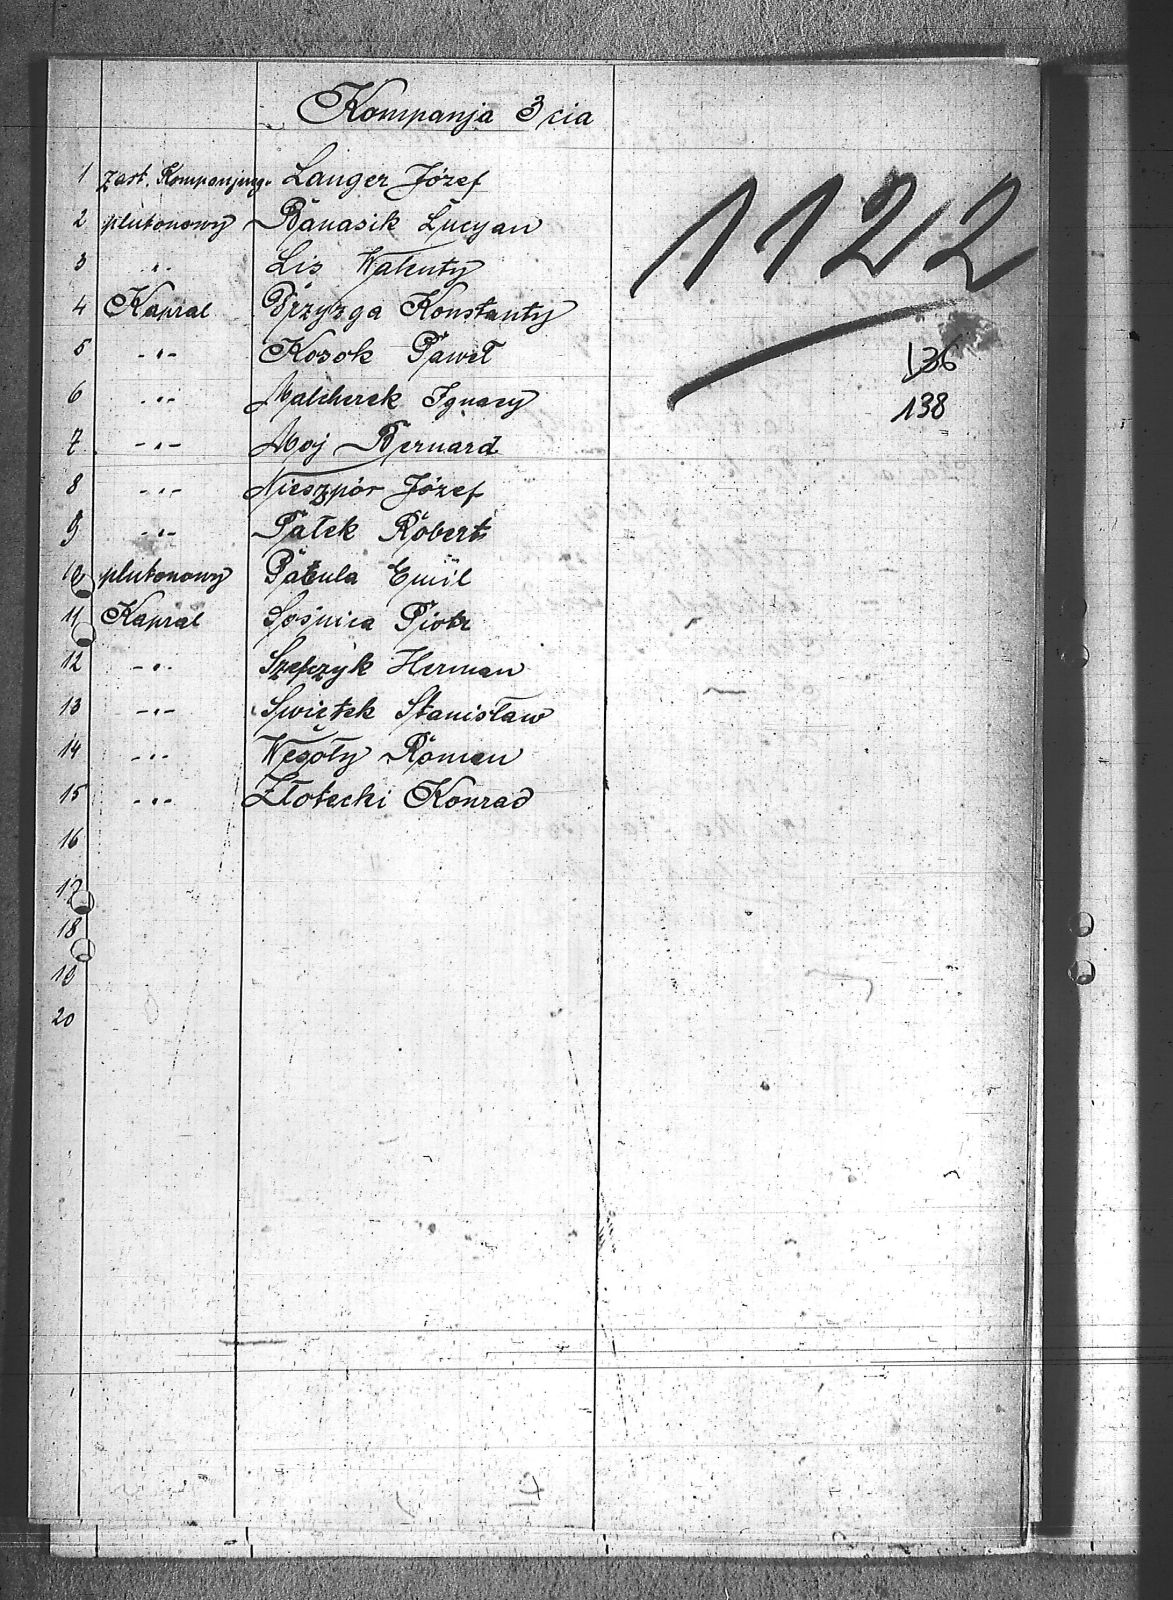 Kompanja 3cia
1 zast. Kompanijneg. Langer Józef
2 plutonowy Banasik Lucyan
3 " Lis Walenty
4 Kapral Przyzga Konstanty
5 -"- Kozok Paweł
6 -"- Malcherek Ignacy
7 -"- Moj Bernard
8 -"- Nieszpór Józef
9 -"- Pałek Robert
10 plutonowy Patula Emil
11 Kapral Sośnica Piotr
12 -"- Szefczyk Herman
13 -"- Swiętek Stanisław
14 -"- Wesoły Roman
15 -"- Złotecki Konrad
16
17
18
19
20
1122
136
138